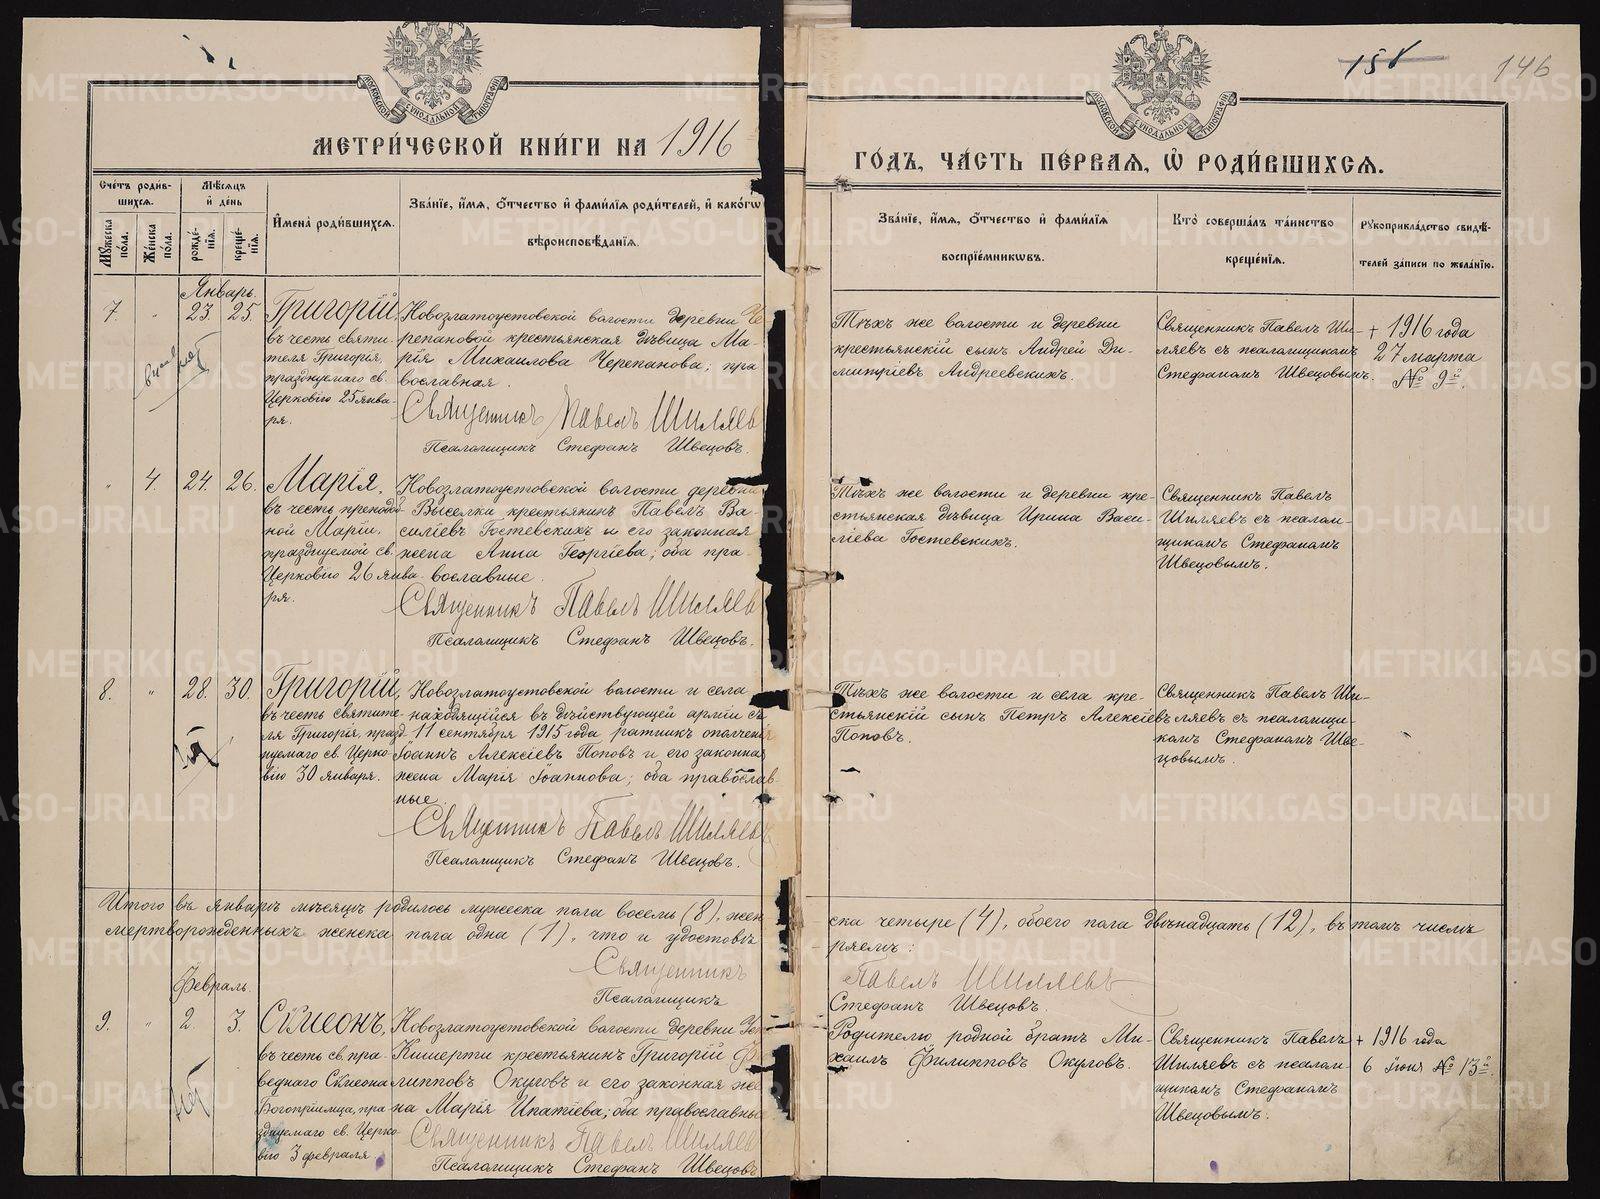 МЕТРИ́ЧЕСКОЙ КНИ́ГИ НА 1916
ГО́ДЪ, ЧА́СТЬ ПЕ́РВАЯ, Ѽ РОДИ́ВШИХСЯ.
158
146
Сче́тъ роди́в-
шихся.
Му́жеска по́ла.
Же́нска по́ла.
Мѣ́сяцъ
и҆ де́нь
рожде́-
нїя.
креще́-
нїя.
И҆мена̀ роди́вшихся.
Зва́нїе, и҆́мя, ѻ҆́тчество и҆ фами́лїя роди́телей, и҆ како́гѡ
вѣроисповѣ́данїя.
Зва́нїе, и҆́мя, ѻ҆́тчество и҆ фами́лїя
воспрїе́мникѡвъ.
Кто̀ соверша́лъ та́инство
креще́нїя.
Рꙋкоприкла́дство свидѣ́-
телей за́писи по жела́нїю.
Январь.
7.
"
23.
25.
Григорій,
въ честь святи-
теля Григорія,
празднуемаго св.
Церковію 25 янва-
ря.
Новозлатоустовской волости деревни Че
репановой крестьянская дѣвица Ма-
рія Михаилова Черепанова; пра
вославная.
Священникъ Павелъ Шиляев
Псаломщикъ Стефанъ Швецовъ.
Тѣхъ же волости и деревни
крестьянскій сынъ Андрей Ди-
митріевъ Андреевскихъ.
Священникъ Павелъ Ши-
ляевъ съ псаломщикомъ
Стефаномъ Швецовымъ.
+ 1916 года
27 марта
№ 9й.
"
4.
24.
26.
Марія,
въ честь преподоб
ной Маріи,
празднуемой св.
Церковію 26 янва-
ря.
Новозлатоустовской волости деревни
Выселки крестьянинъ Павелъ Ва-
силіевъ Гостевскихъ и его законная
жена Анна Георгіева; оба пра-
вославные.
Священникъ Павелъ Шиляев
Псаломщикъ Стефанъ Швецовъ.
Тѣхъ же волости и деревни кре-
стьянская дѣвица Ирина Васи-
ліева Гостевскихъ.
Священникъ Павелъ
Шиляевъ съ псалом-
щикомъ Стефаномъ
Швецовымъ.
8.
"
28.
30.
Григорій,
въ честь святите-
ля Григорія, празд-
нуемаго св. Церко-
вію 30 января.
Новозлатоустовской волости и села
находящійся въ дѣйствующей арміи съ
11 сентября 1915 года ратникъ ополчені
Іоаннъ Алексіевъ Поповъ и его законная
жена Марія Іоаннова; оба православ-
ные.
Священникъ Павелъ Шиляевъ
Псаломщикъ Стефанъ Швецовъ.
Тѣхъ же волости и села кре-
стьянскій сынъ Петръ Алексіевъ
Поповъ.
Священникъ Павелъ Ши-
ляевъ съ псаломщи-
комъ Стефаномъ Шве-
цовымъ.
Итого въ январѣ мѣсяцѣ родилось мужеска пола восемь (8), жен
ска четыре (4), обоего пола двѣнадцать (12), въ томъ числѣ
мертворожденныхъ женска пола одна (1), что и удостовѣ
ряемъ:
Священникъ
Павелъ Шиляевъ
Псаломщикъ
Стефанъ Швецовъ.
Февраль.
9.
"
2.
3.
Сѵмеонъ,
въ честь св. пра-
веднаго Сѵмеона
Богопріимца, пра-
зднуемаго св. Церко-
вію 3 февраля
Новозлатоустовской волости деревни Уст
Кишерти крестьянинъ Григорій Фи
липповъ Окуловъ и его законная же
на Марія Ипатіева; оба православны
Священникъ Павелъ Шиляев
Псаломщикъ Стефанъ Швецовъ
Родителю родной братъ Ми-
хаилъ Филипповъ Окуловъ.
Священникъ Павелъ
Шиляевъ съ псалом-
щикомъ Стефаномъ
Швецовымъ.
+ 1916 года
6 іюня № 13й.
METRIKI.GASO-URAL.RU